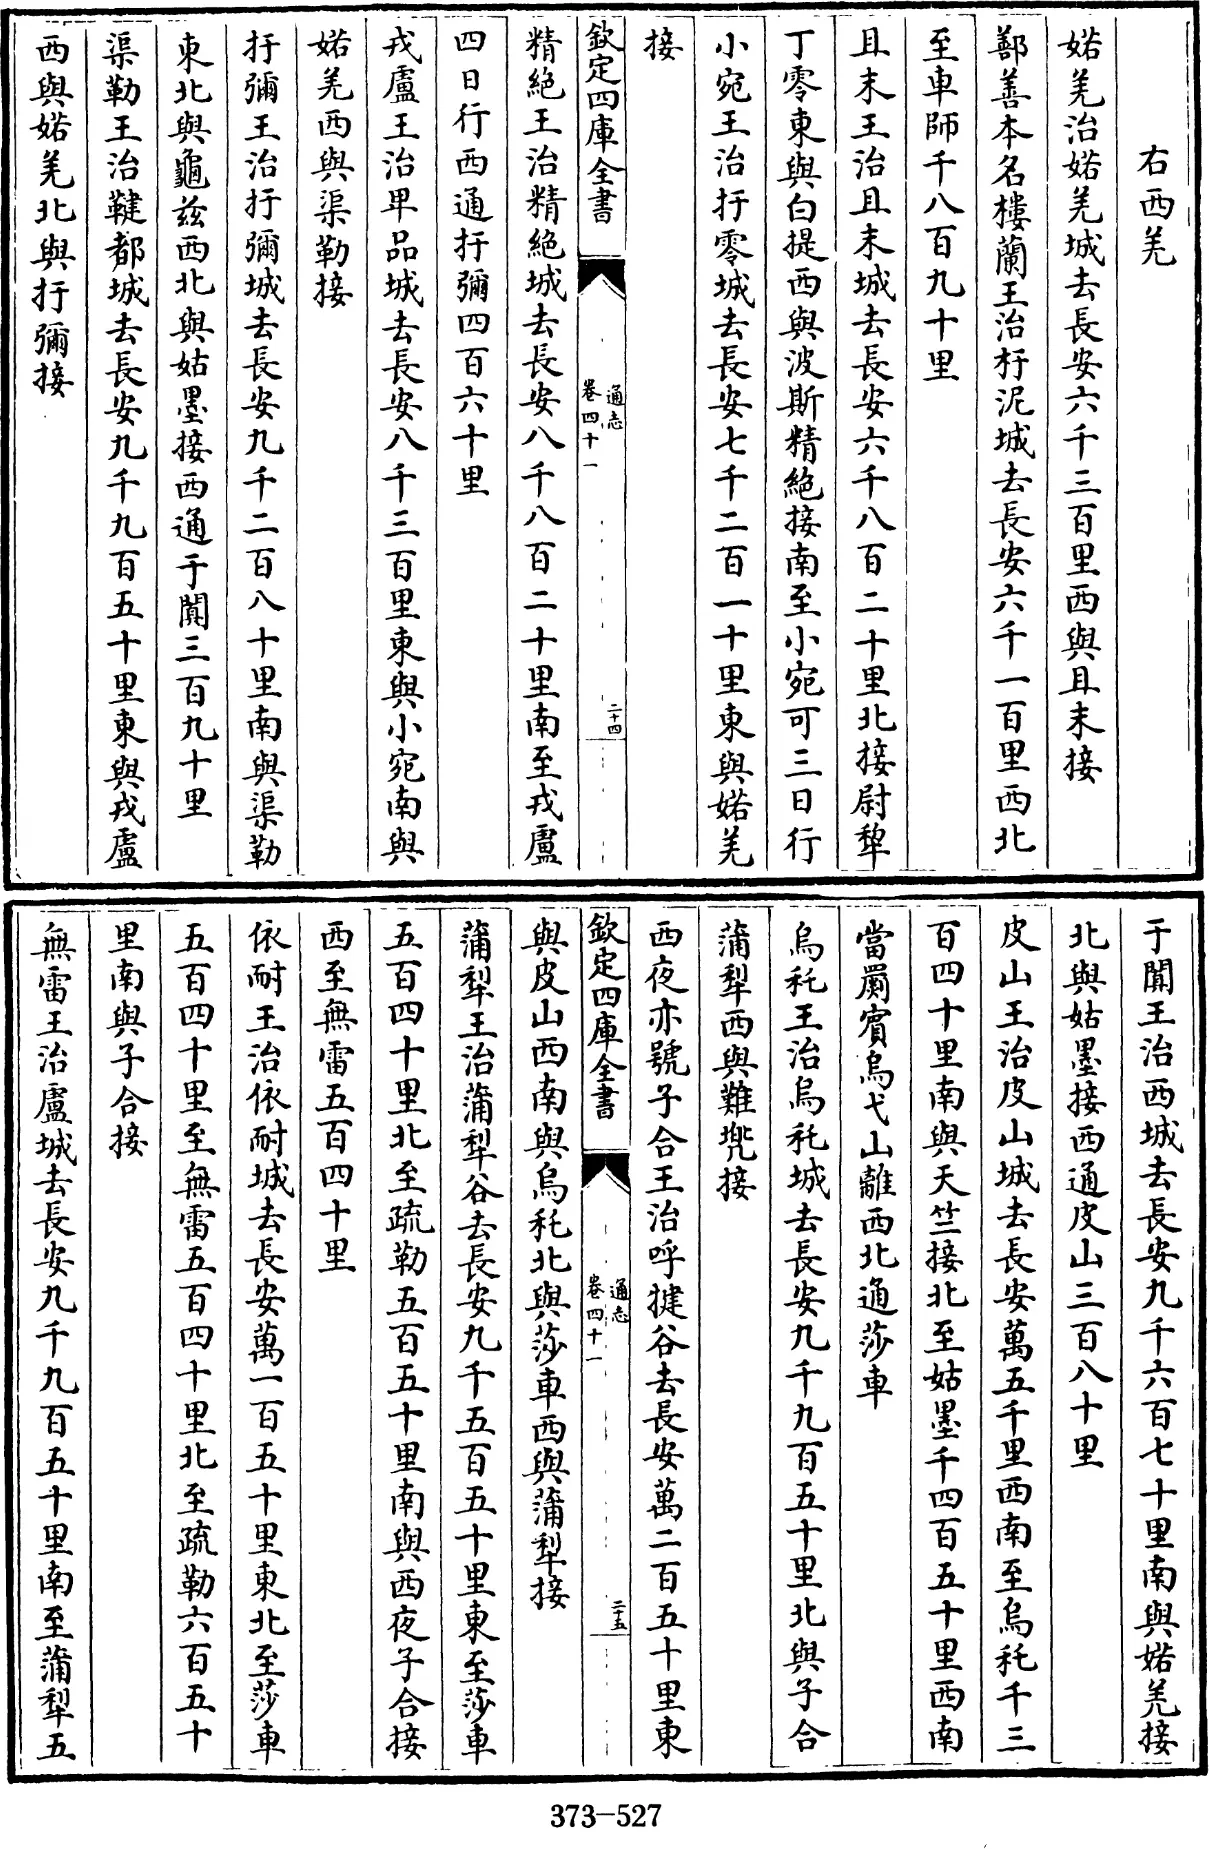 右西羌
婼羌治婼羌城去長安六千三百里西與且末接
鄯善本名樓蘭王治杅泥城去長安六千一百里西北
至車師千八百九十里
且末王治且末城去長安六千八百二十里北接尉犂
丁零東與白提西與波斯精絶接南至小宛可三日行
小宛王治扜零城去長安七千二百一十里東與婼羌
接
欽定四庫全書
通志
卷四十一
二十四
精絶王治精絶城去長安八千八百二十里南至戎盧
四日行西通扜彌四百六十里
戎盧王治卑品城去長安八千三百里東與小宛南與
婼羌西與渠勒接
扜彌王治扜彌城去長安九千二百八十里南與渠勒
東北與龜兹西北與姑墨接西通于闐三百九十里
渠勒王治鞬都城去長安九千九百五十里東與戎盧
西與婼羌北與扜彌接
于闐王治西城去長安九千六百七十里南與婼羌接
北與姑墨接西通皮山三百八十里
皮山王治皮山城去長安萬五千里西南至烏秅千三
百四十里南與天竺接北至姑墨千四百五十里西南
當罽賓烏弋山離西北通莎車
烏秅王治烏秅城去長安九千九百五十里北與子合
蒲犂西與難兠接
西夜亦號子合王治呼揵谷去長安萬二百五十里東
欽定四庫全書
通志
卷四十一
二十五
與皮山西南與烏秅北與莎車西與蒲犂接
蒲犂王治蒲犂谷去長安九千五百五十里東至莎車
五百四十里北至疏勒五百五十里南與西夜子合接
西至無雷五百四十里
依耐王治依耐城去長安萬一百五十里東北至莎車
五百四十里至無雷五百四十里北至疏勒六百五十
里南與子合接
無雷王治盧城去長安九千九百五十里南至蒲犂五
373-527